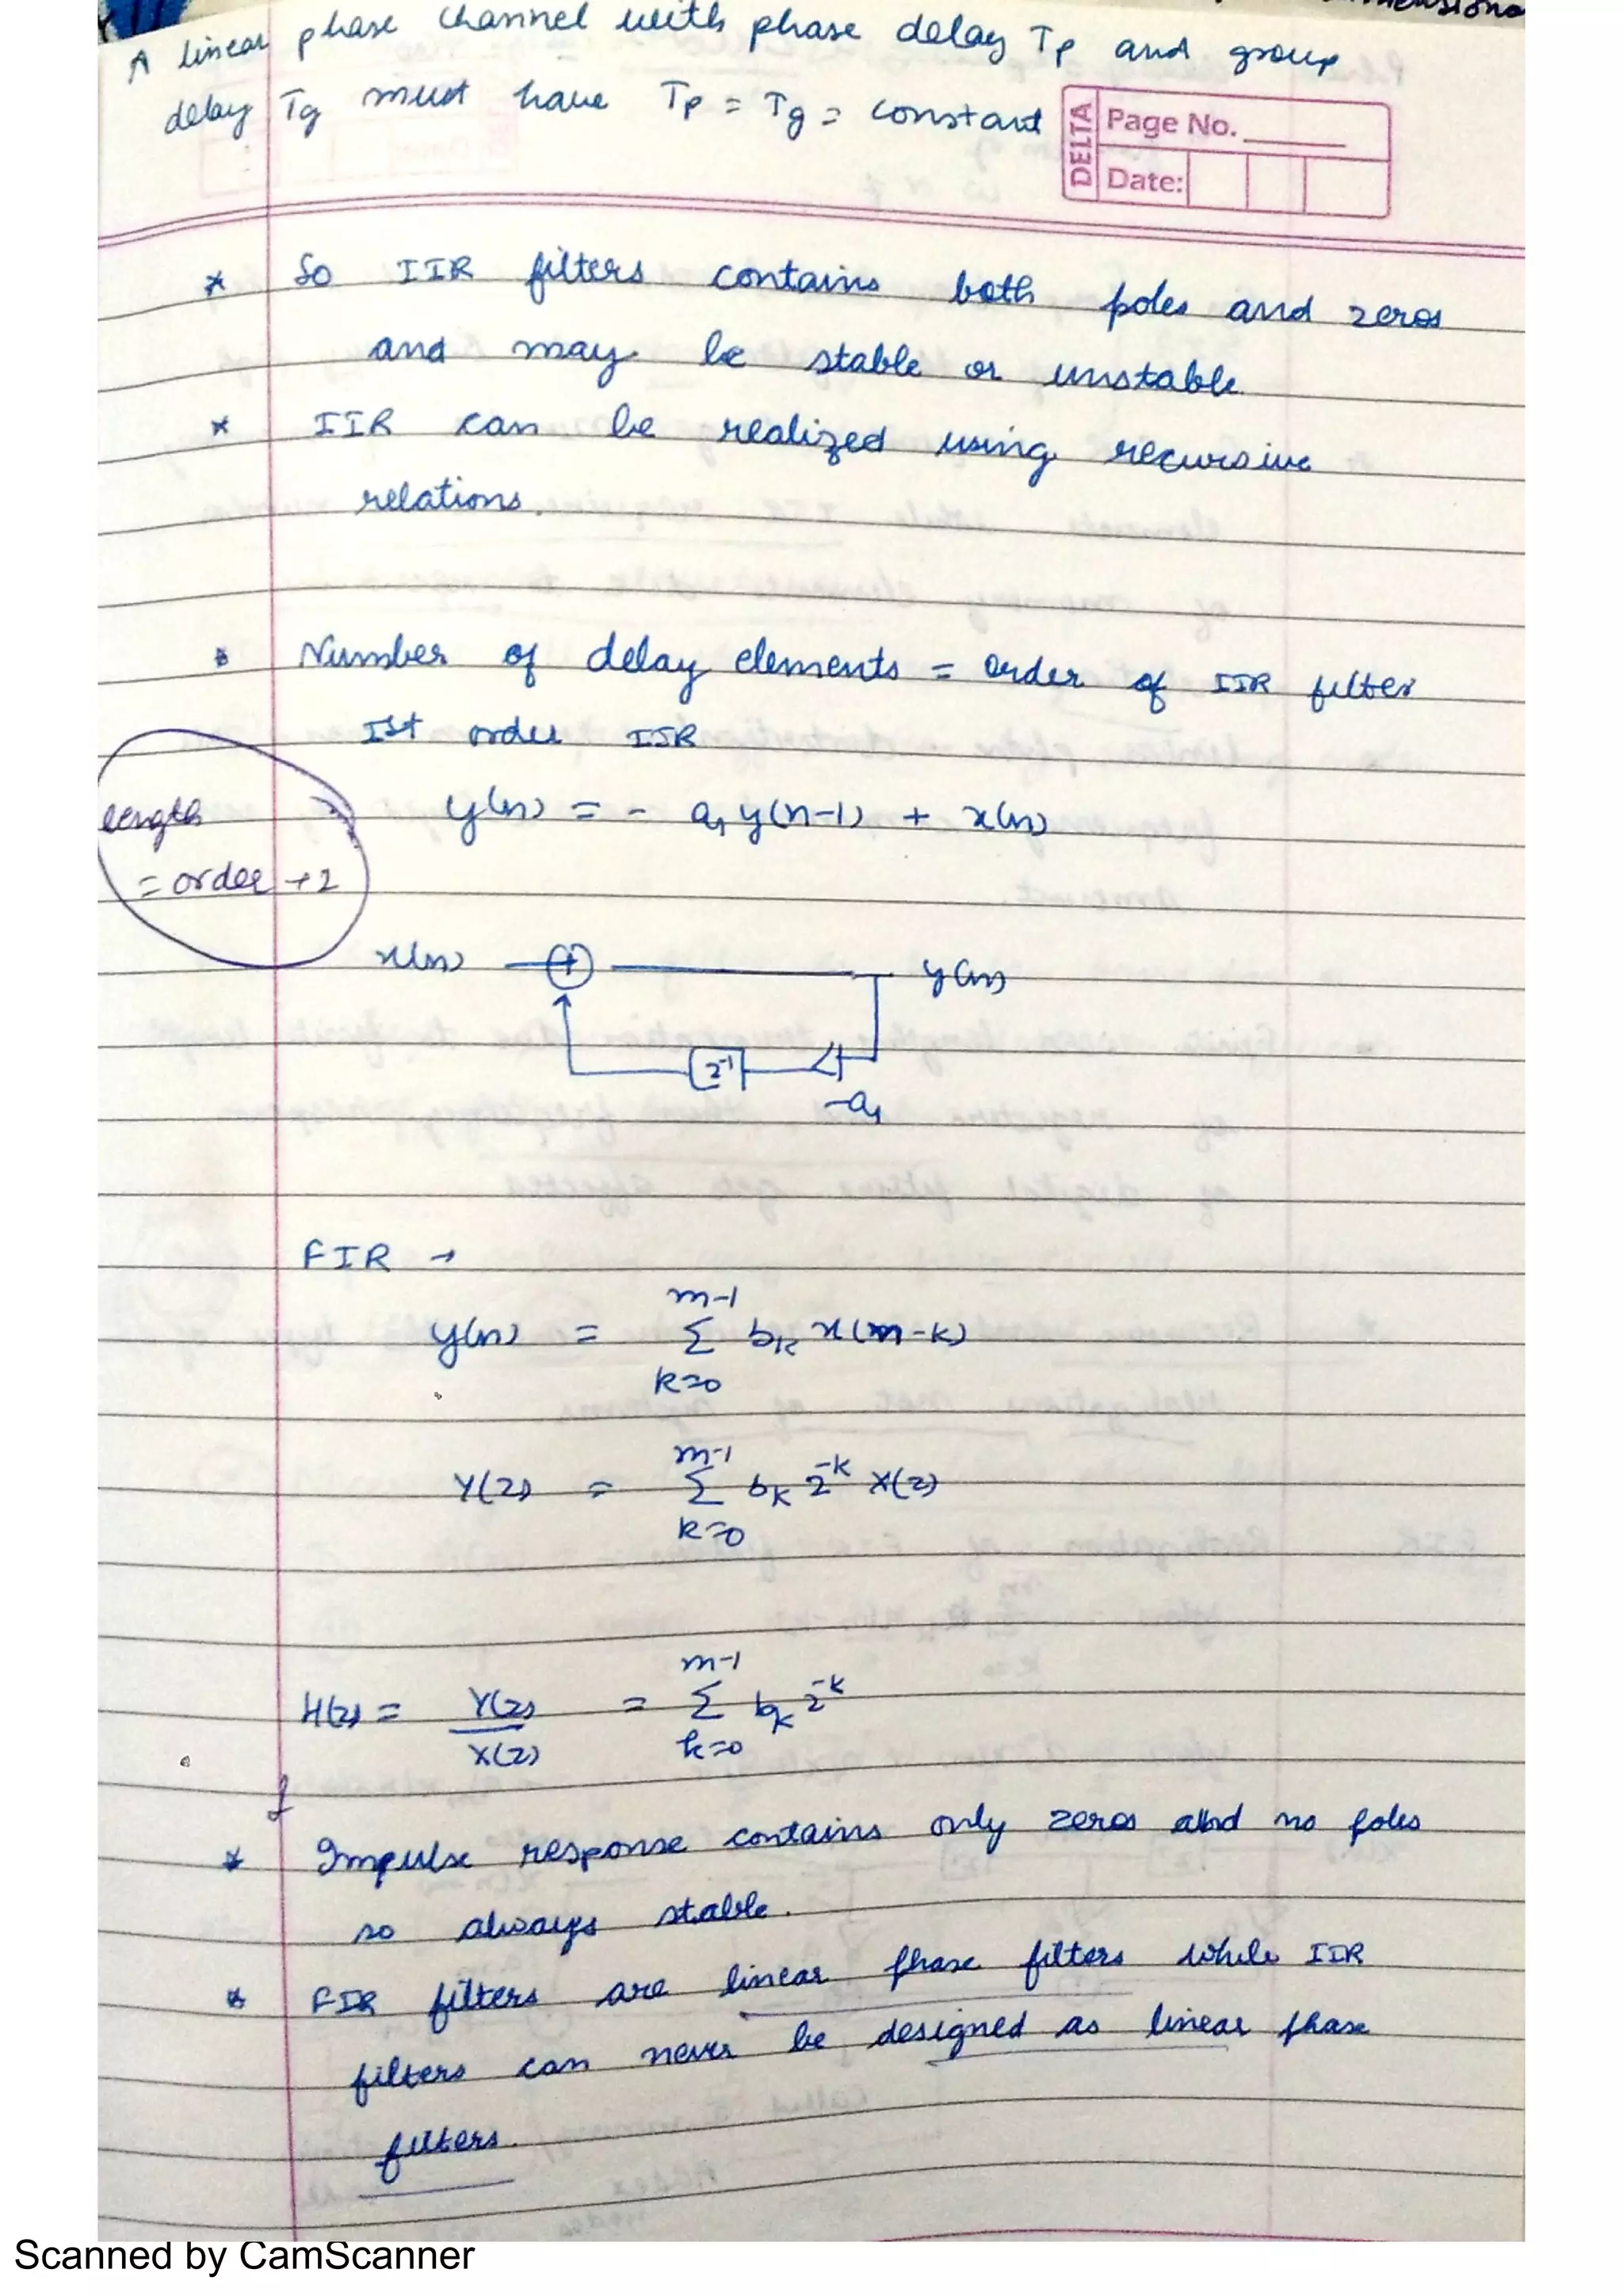 A linear phase channel with phase delay Tp and group
delay Tg must have Tp = Tg = constant
DELTA
Page No.
Date:
* So IIR filters contains both poles and zeros
and may be stable or unstable.
* IIR can be realized using recursive
relations.
* Number of delay elements = order of IIR filter
Ist order IIR
y(n) = - a₁ y(n-1) + x(n)
length
= order + 2
x(n) + y(n)
z⁻¹
-a₁
FIR →
m-1
y(n) = Σ bₖ x(n-k)
k=0
m-1
Y(z) = Σ bₖ z⁻ᵏ X(z)
k=0
m-1
H(z) = Y(z) = Σ bₖ z⁻ᵏ
X(z) k=0
* Impulse response contains only zeros and no poles
so always stable.
* FIR filters are linear phase filters while IIR
filters can never be designed as linear phase
filters.
Scanned by CamScanner